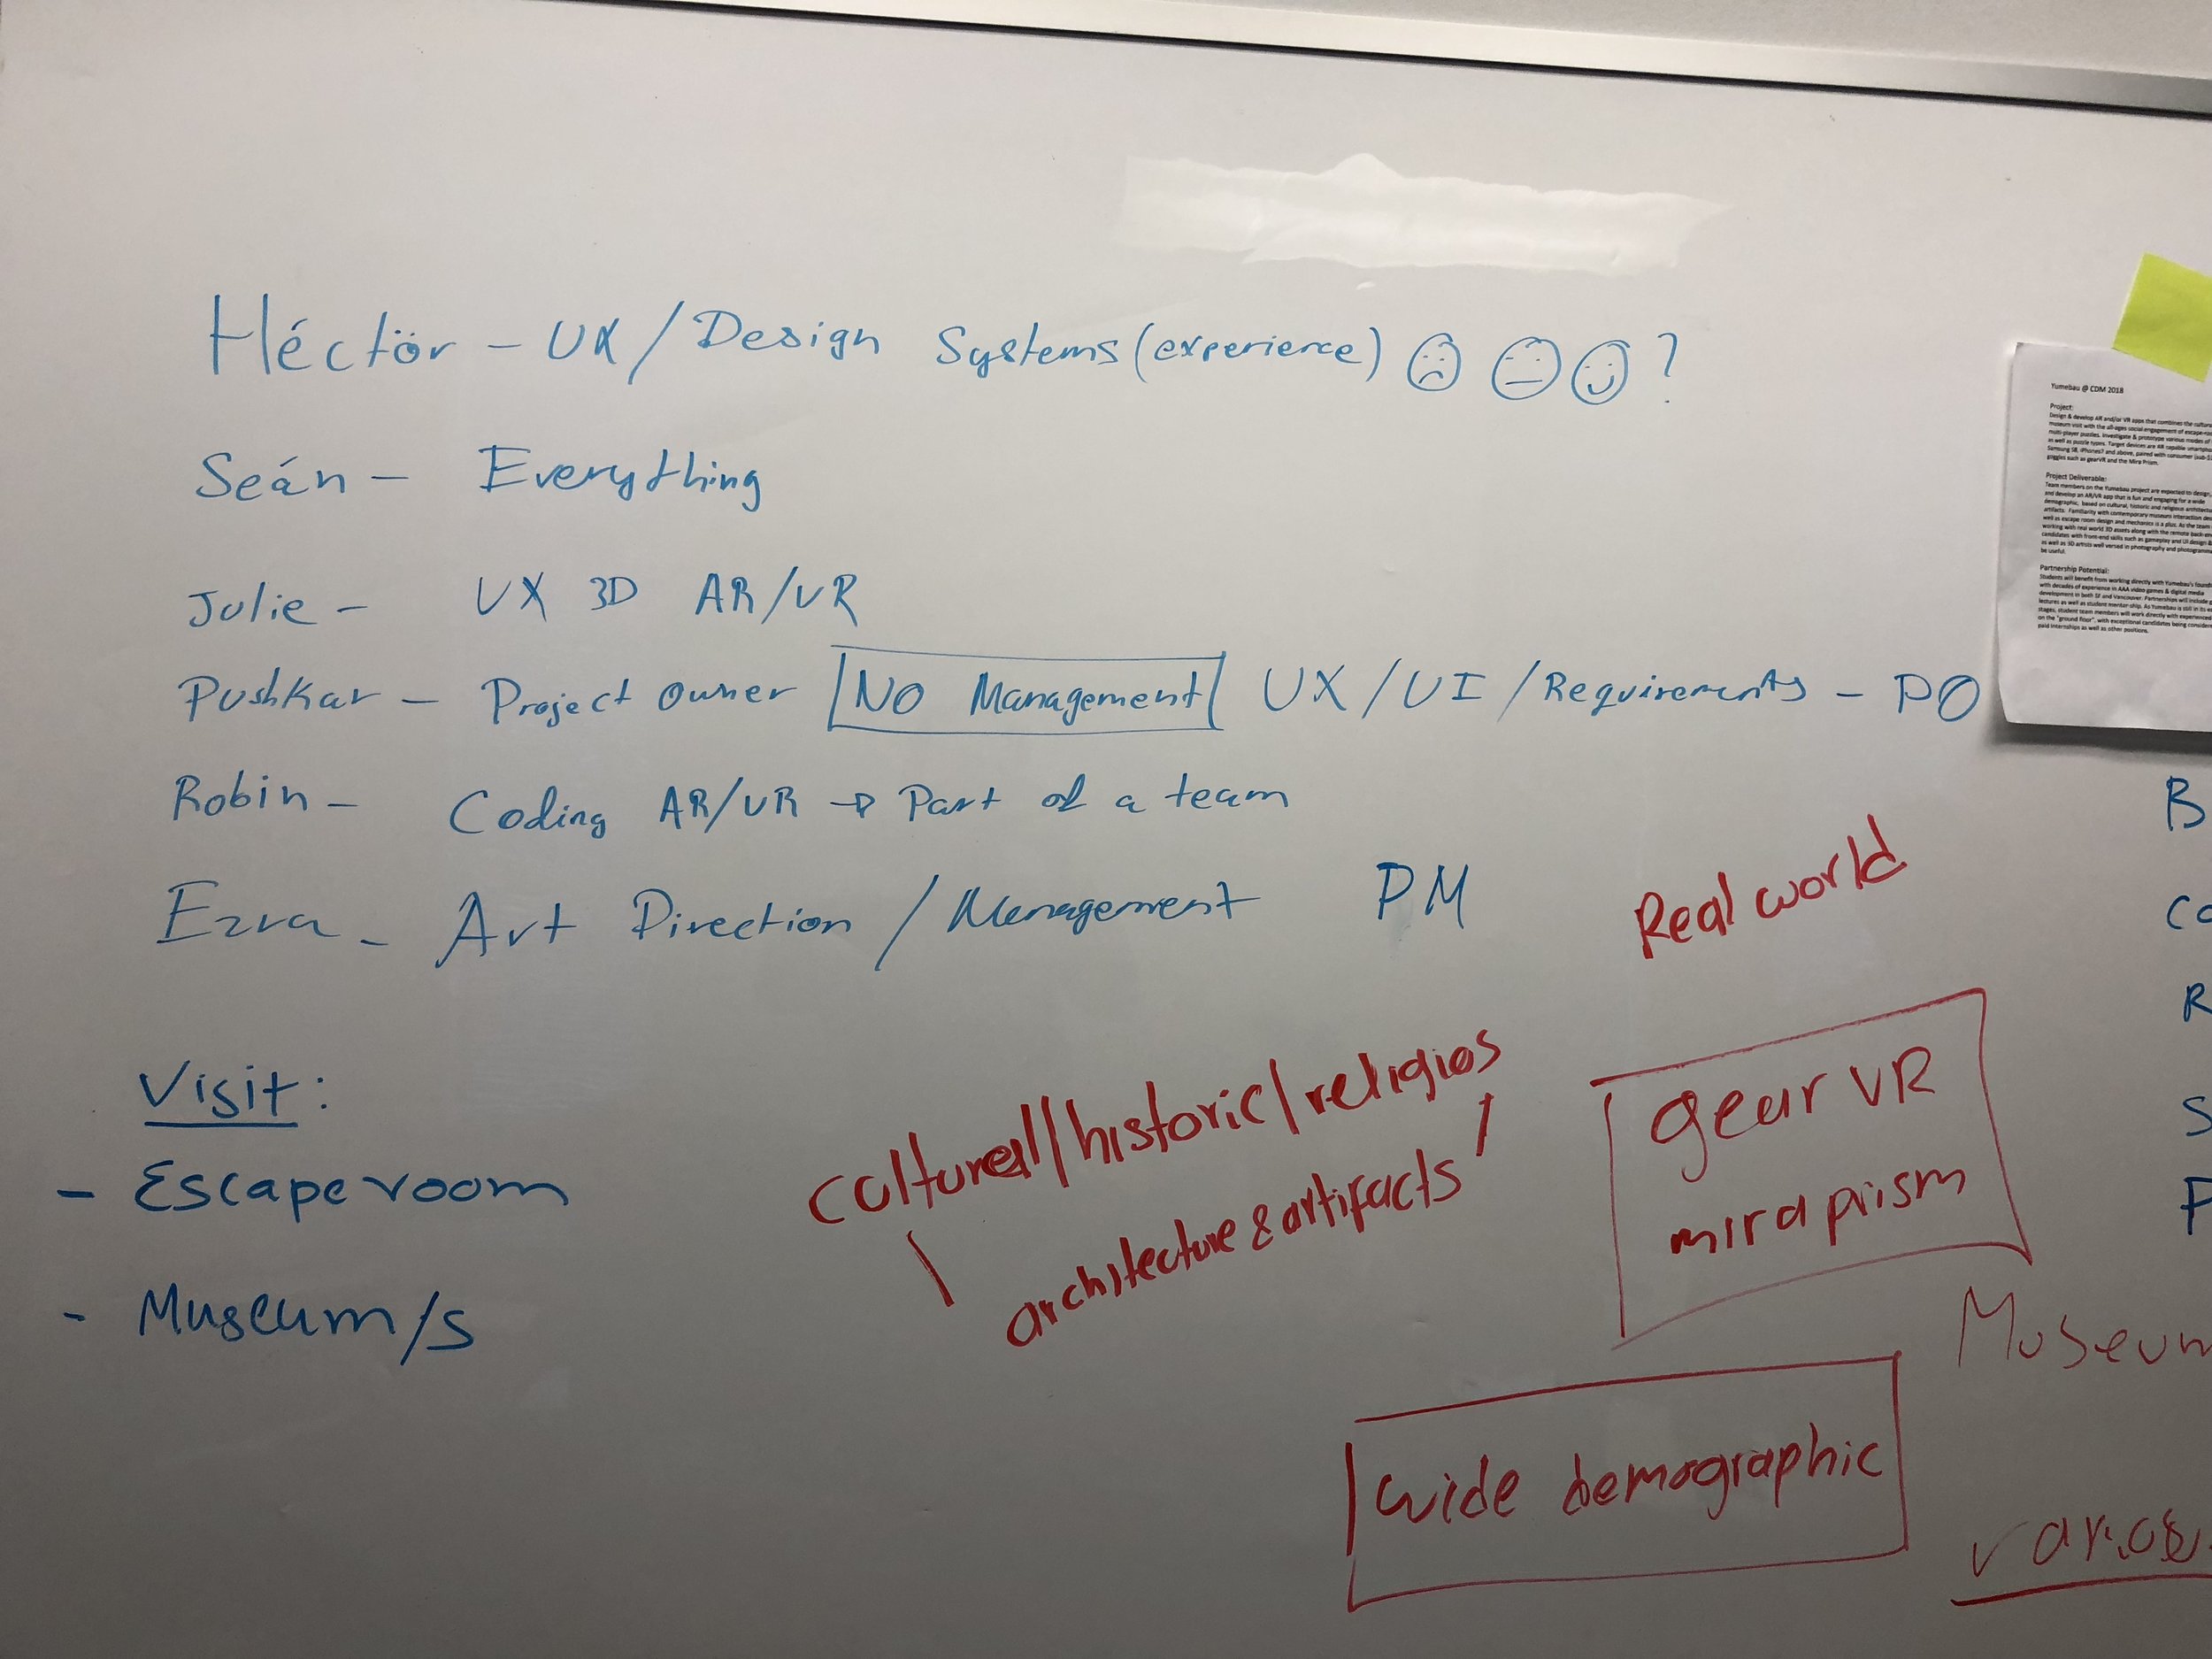 Héctör – UX / Design Systems (experience) ?
Seán – Everything
Julie – UX 3D AR/VR
Pushkar – Project owner No Management UX / UI / Requirements – PO
Robin – Coding AR/VR → Part of a team
Ezra – Art Direction / Management PM
Visit:
- Escape room
- Museum/s
Real world
cultural/historic/religios
architecture & artifacts
gear VR
mira prism
wide demographic
Museum
B
Co
R
S
Yumebau @ CDM 2018
Project:
Design & develop AR and/or VR apps that combines the cultura
museum visit with the all-ages social engagement of escape-roo
multi-player puzzles. Investigate & prototype various modes of
as well as puzzle types. Target devices are AR capable smartpho
Samsung S8, iPhones7 and above, paired with consumer (sub-$
goggles such as gearVR and the Mira Prism.
Project Deliverable:
Team members on the Yumebau project are expected to design,
and develop an AR/VR app that is fun and engaging for a wide
demographic, based on cultural, historic and religious architectu
artifacts. Familiarity with contemporary museum interaction des
well as escape room design and mechanics is a plus. As the team
working with real world 3D assets along with the remote back-en
candidates with front-end skills such as gameplay and UI design &
as well as 3D artists well versed in photography and photogramm
be useful.
Partnership Potential:
Students will benefit from working directly with Yumebau's found
with decades of experience in AAA video games & digital media
development in both SF and Vancouver. Partnerships will include g
lectures as well as student mentor ship. As Yumebau is still in its ea
stages, student team members will work directly with experienced
on the "ground floor", with exceptional candidates being considere
paid internships as well as other positions.